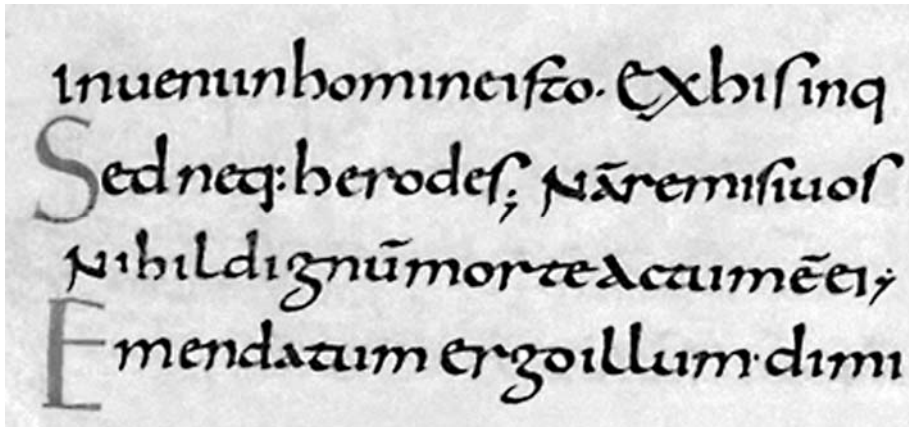 inueniinhomineisto. Exhisinq
Sed neq: herodes; Nāremisiuos
Nihildignūmorteactumēei;
Emendatum ergoillum·dimi